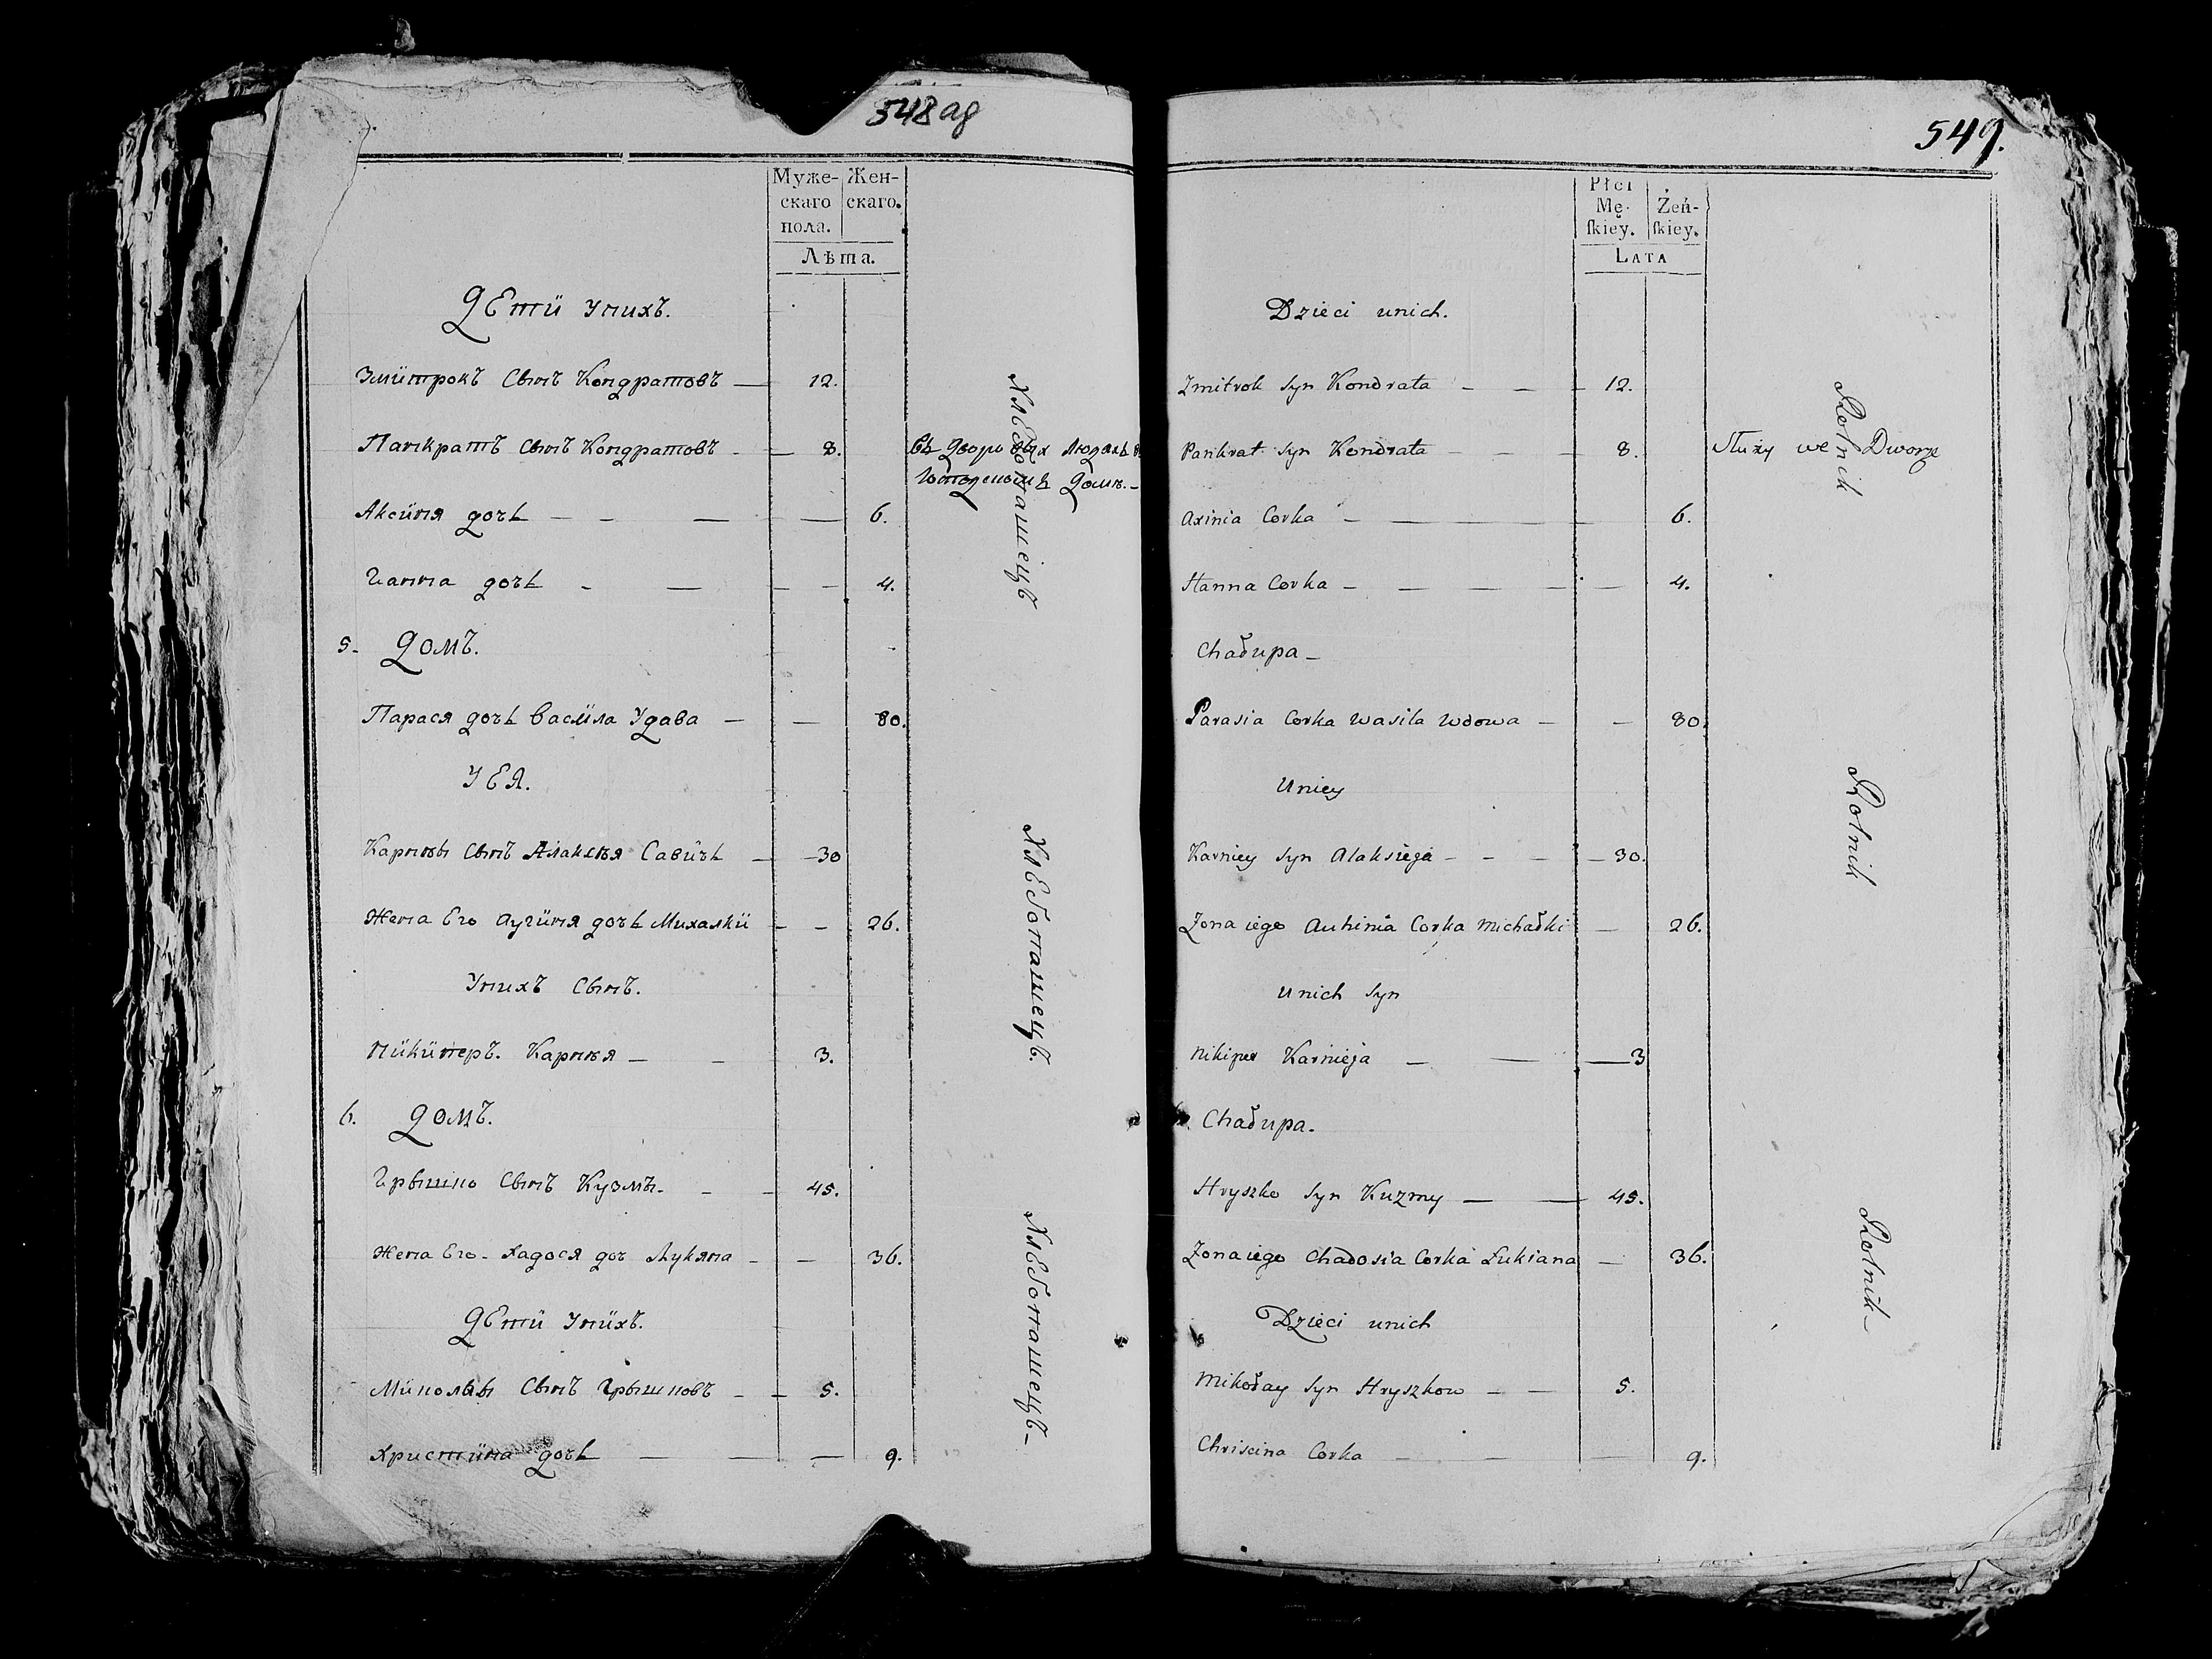 548 об
Муже- Жен-
скаго скаго.
пола.
Лѣта.
Дети уних.
Змитрокъ Сынъ Кондратовъ — 12.
Панкратъ Сынъ Кондратовъ - — 8. въ дворовых людяхъ
Домъ. -
Аксиня дочь — - — — 6.
Ганна дочь - — - — 4.
Хлебопашецъ
5. Домъ.
Парася дочь Васила Удава — — 80.
У Ея.
Карней Сынъ Алаксея Савичь — 30
Жена Его Аугиня дочь Михалки - - 26.
Уних Сынъ.
Никиперъ. Карнея — - 3.
Хлебопашецъ.
6. Домъ.
Грышко Сынъ Кузмы. - - 45.
Жена Его - Хадося доч Лукяна - — 36.
Дети Уних.
Миколай Сынъ Грышковъ - - 5.
Христина дочь — — — 9.
Хлебопашецъ -
549.
Płci
Mę- Żeń-
ſkiey. ſkiey.
Lata
Dzieci unich.
Zmitrok Syn Kondrata - — - 12.
Pankrat Syn Kondrata - - - 8. Służy we Dworze
Axinia Corka - — — — 6.
Hanna Corka - — — - — 4.
Rolnik
Chałupa -
Parasia Corka Wasila Wdowa - - 80.
Uniey
Karniey Syn Alaksieja - - - - 30.
Zona iego Auhinia Corka Michałki — 26.
Unich Syn
Nikiper Karnieja — — — 3
Rolnik
Chałupa.
Hryszko Syn Kuzmy — — 45.
Zona iego Chadosia Corka Łukiana — 36.
Dzieci unich
Mikołay Syn Hryszkow - — 5.
Chriscina Corka - - — 9.
Rolnik -